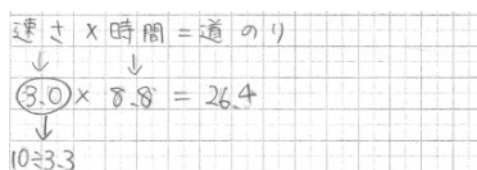 速さ×時間=道のり
↓ ↓
3.0× 8.8 = 26.4
↓
10÷3.3